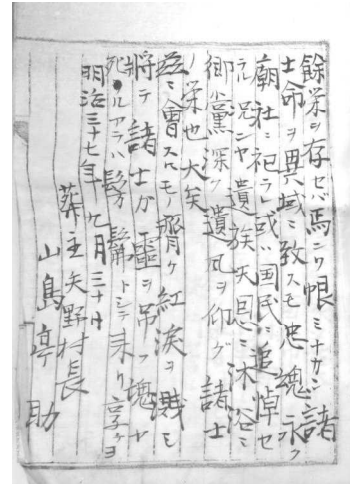 餘栄ヲ存セバ焉ンゾ恨ミナカラン諸
士命ヲ異域ニ致スモ忠魂永ク
廟社ニ祀ラレ或ハ国民ニ追悼セ
ラル况ンヤ遺族天恩ニ沐浴ミ
郷黨深ク遺風ヲ仰グ諸士
ノ栄也大矣
茲ニ會スルモノ齊ク紅涙ヲ濺ミ
将テ諸士カ霊ヲ吊フ魂シ
死ルアラハ髣髴トシテ来リ享ケヨ
明治三十七年九月三十日
葬主矢野村長
山島亭助